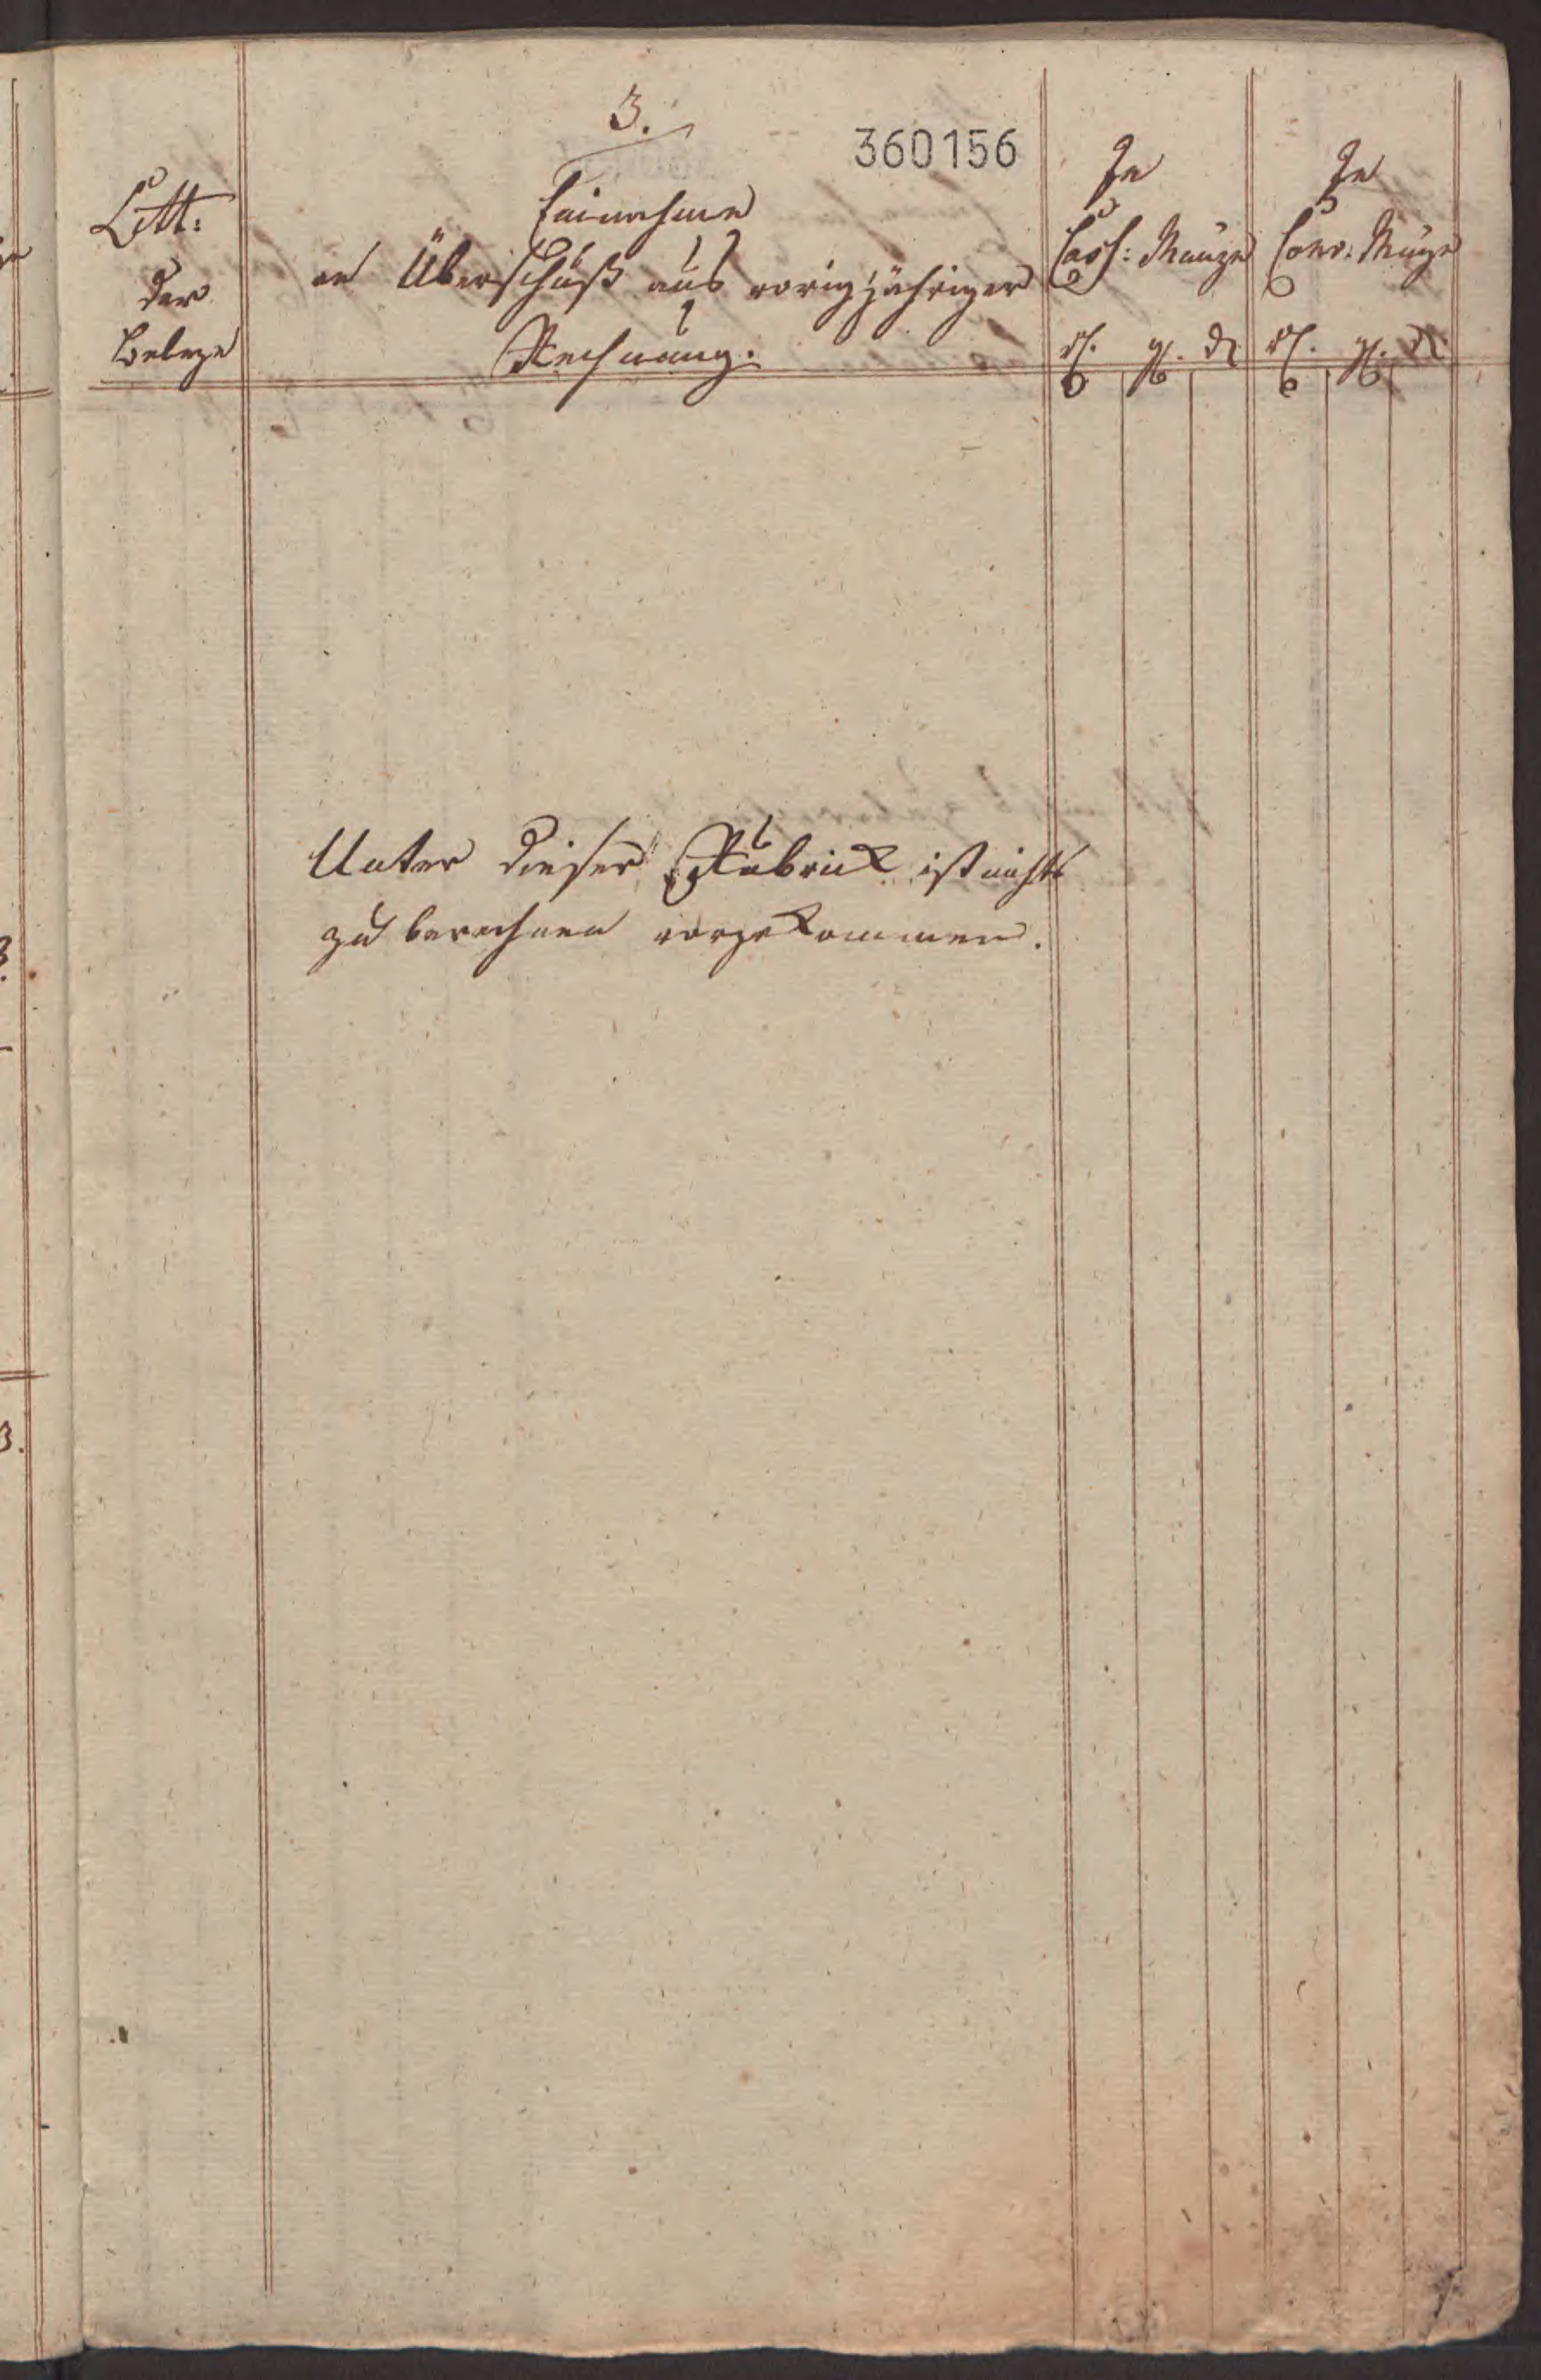 3.
360156
Litt:
der
Belege
Einnahme
an Überschuß aus vorigjähriger
Rechnung.
In
Cass: Münze
rh. gg. d
In
Conv: Münze
rh. gg. d
Unter dieser Rubrick ist nichts
zu berechnen vorgekommen.